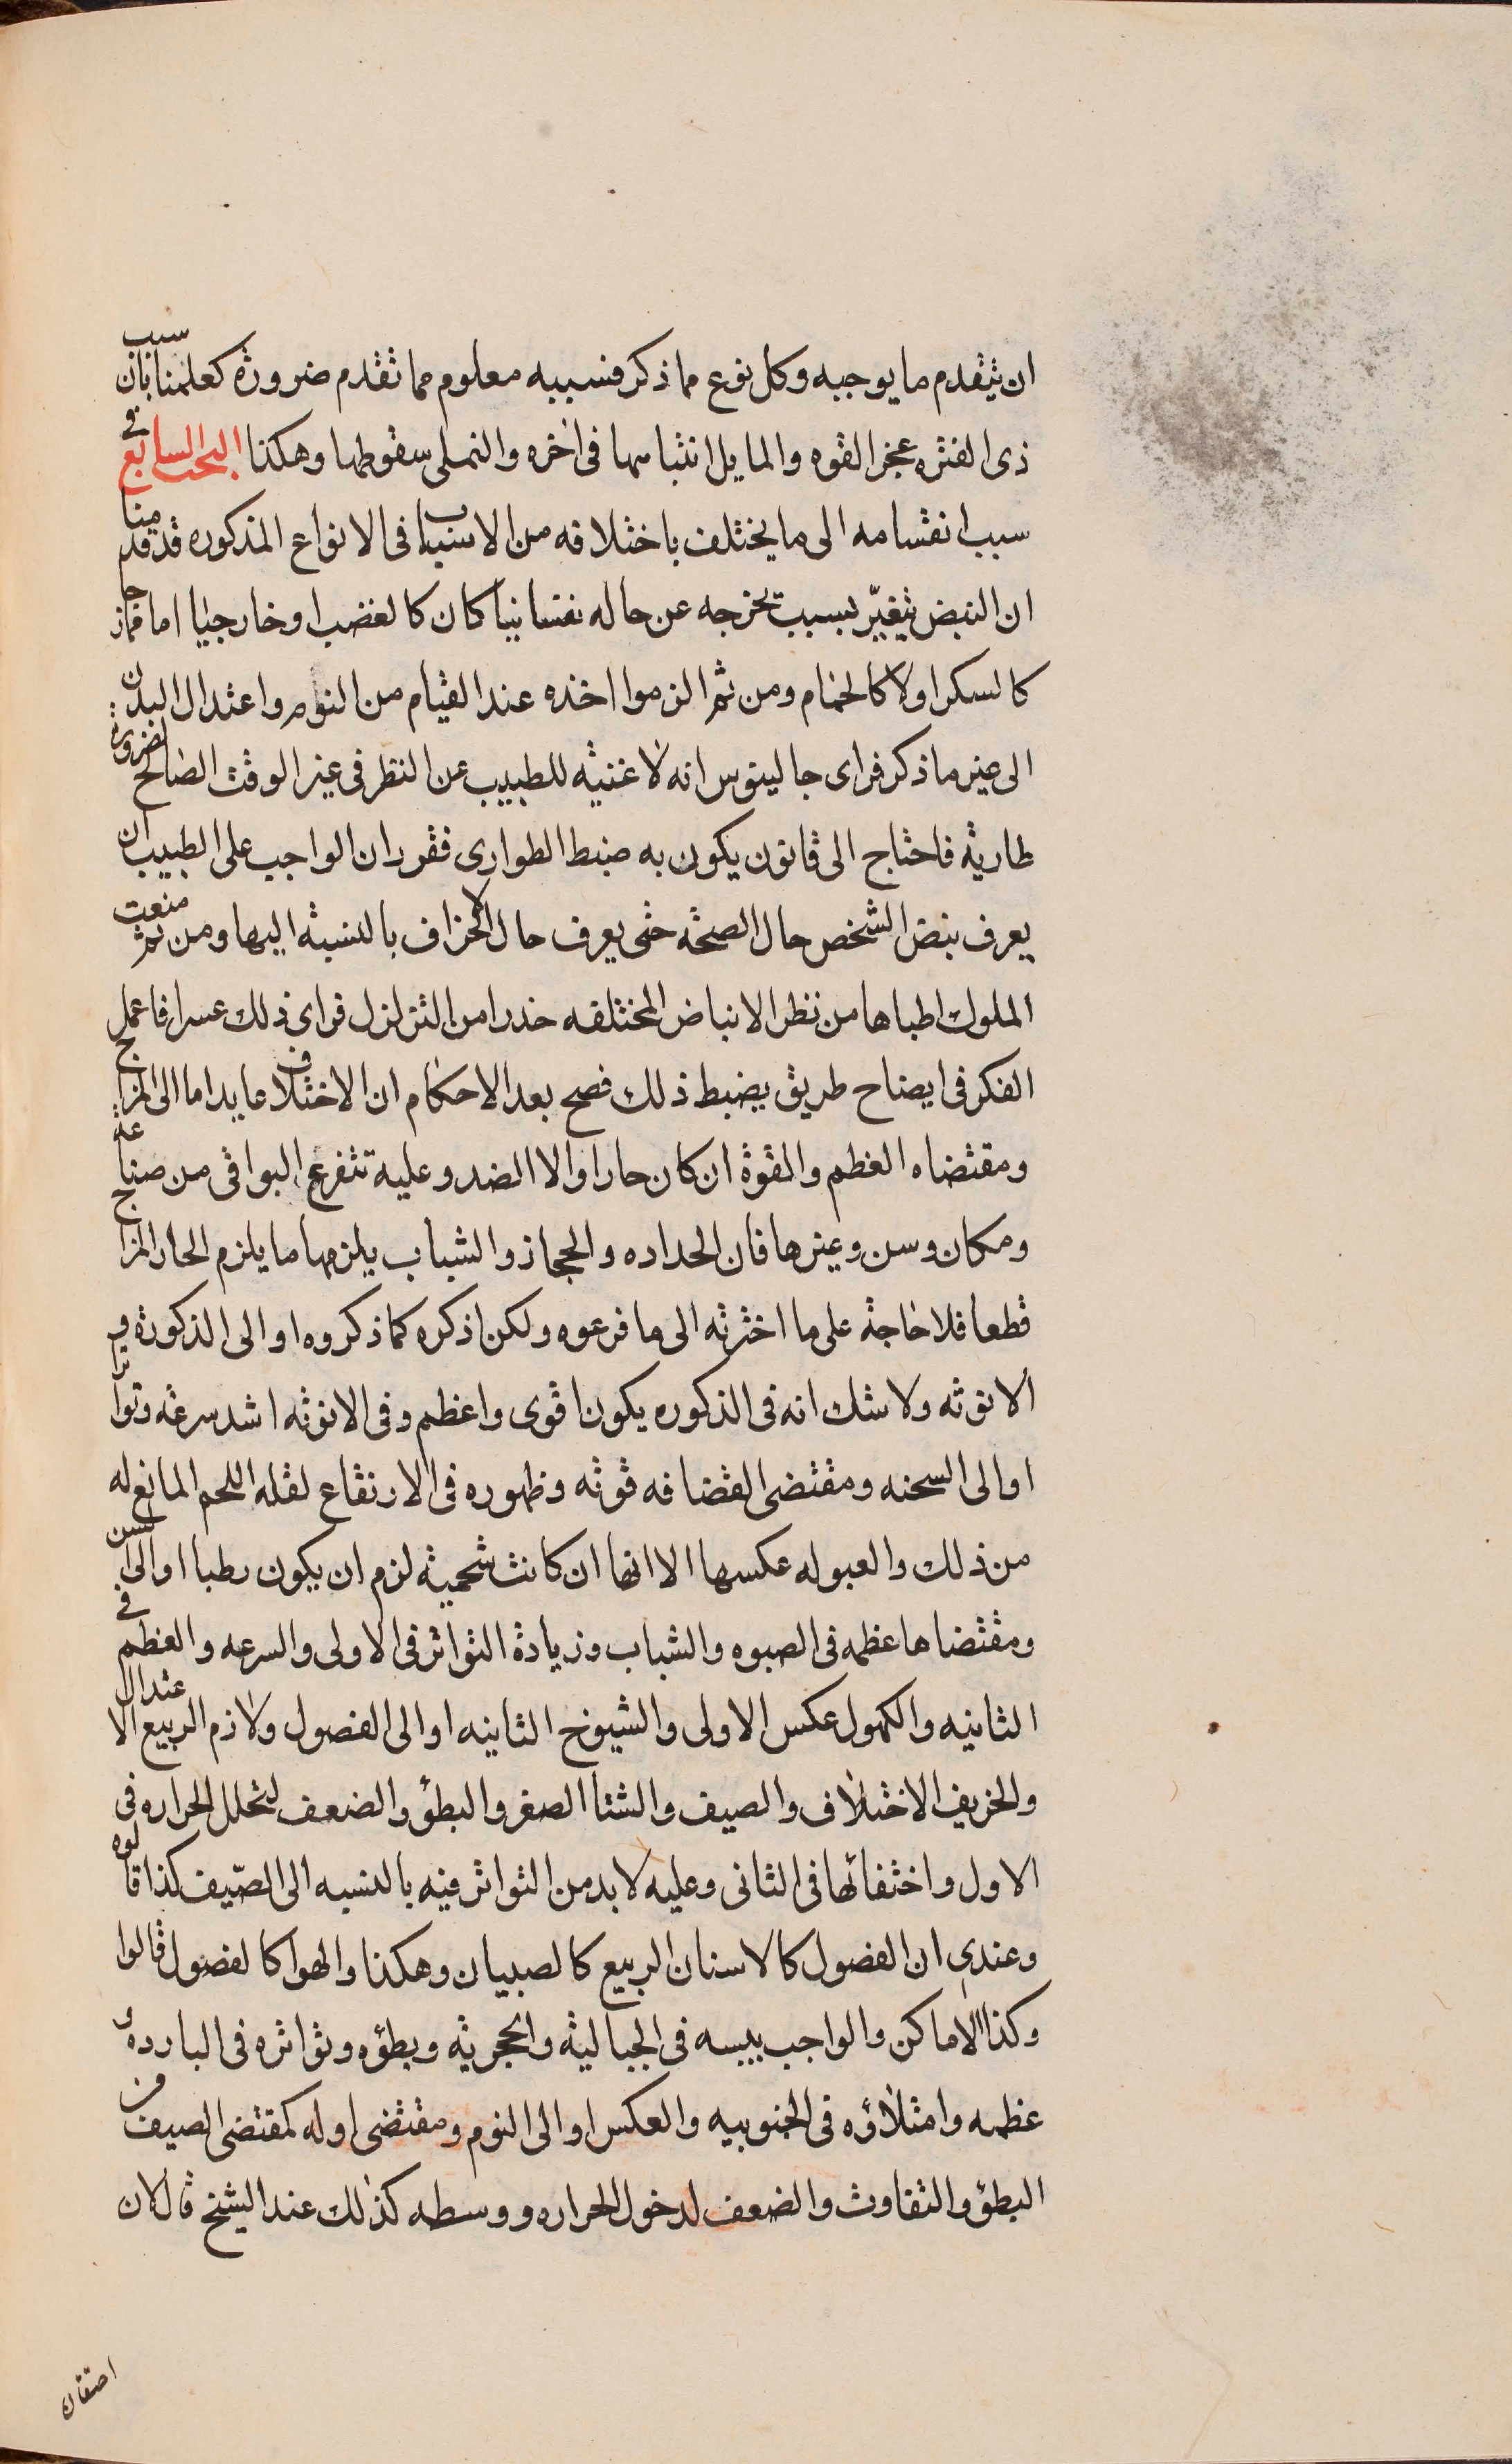 ان يتقدم ما يوجبه وكل نوع مما ذكر فسببه معلوم مما تقدم ضرورة كعلمنا بان سبب
ذى الفتره عجز القوه والمايل انتباهها فى اخره والنملى سقوطها وهكذا البحث السابع فى
سبب انقسامه الى ما يختلف باختلافه من الاسباب فى الانواع المذكوره قد قدمنا
ان النبض يتغيّر بسبب يخرجه عن حاله نفسانيا كان كالغضب او خارجيا اما مازجا
كالسكر اولا كالحمام ومن ثم الزموا اخذه عند القيام من النوم واعتدال البدن
الى غير ما ذكر فراى جالينوس انه لا غنية للطبيب عن النظر فى غير الوقت الصالح لضرورة
طارية فاحتاج الى قانون يكون به ضبط الطوارى فقرر ان الواجب على الطبيب ان
يعرف نبض الشخص حال الصحة حتى يعرف حال الانحراف بالنسبة اليها ومن ثم منعت
الملوك اطباها من نظر الانباض المختلفه حذرا من التزلزل فراى ذلك عسرا فاعمل
الفكر فى ايضاح طريق يضبط ذلك فصح بعد الاحكام ان الاختلاف عايد اما الى المزاج
ومقتضاه العظم والقوة ان كان حارا والا الضد وعليه تتفرع البواقى من صناعة
ومكان وسن وغيرها فان الحداده والحجاز والشباب يلزمها ما يلزم الحار المزاج
قطعا فلا حاجة على ما اخترته الى ما فرعوه ولكن اذكره كما ذكروه او الى الذكورة و
الانوثه ولا شك انه فى الذكوره يكون اقوى واعظم وفى الانوثه اشد سرعة وتواترا
او الى السحنه ومقتضى القضافه قوته وظهوره فى الارتفاع لقله اللحم المانع له
من ذلك والعبوله عكسها الا انها ان كانت شحمية لزم ان يكون رطبا او الى السن
ومقتضاها عظمه فى الصبوه والشباب وزيادة التواتر فى الاولى والسرعه والعظم فى
الثانيه والكهول عكس الاولى والشيوخ الثانيه او الى الفصول ولازم الربيع الاعتدال
والخريف الاختلاف والصيف والشتا الصغر والبطؤ والضعف لتحلل الحراره فى
الاول واختفائها فى الثانى وعليه لا بد من التواتر فيه بالنسبه الى الصّيف كذا قالوه
وعندى ان الفصول كالاسنان الربيع كالصبيان وهكذا والهوا كالفصول قالوا
وكذا الاماكن والواجب يبسه فى الجبالية والحجرية وبطؤه وتواتره فى البارده و
عظمه وامتلاؤه فى الجنوبيه والعكس او الى النوم ومقتضى اوله كمقتضى الصيف من
البطؤ والتفاوت والضعف لدخول الحراره ووسطه كذلك عند الشيخ قال لان
احتقان